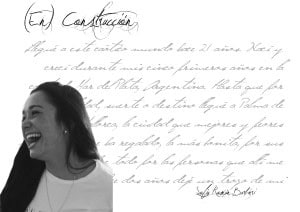 (En) Construcción
Llegué a este caótico mundo hace 21 años. Nací y
crecí durante mis cinco primeros años en la
Mar de Plata, Argentina. Hasta que por
suerte o destino llegué a Palma de
la ciudad que mejores y peores
ha regalado, la más bonita por sus
todo por las personas que allí me
dos años dejé un trozo de mí